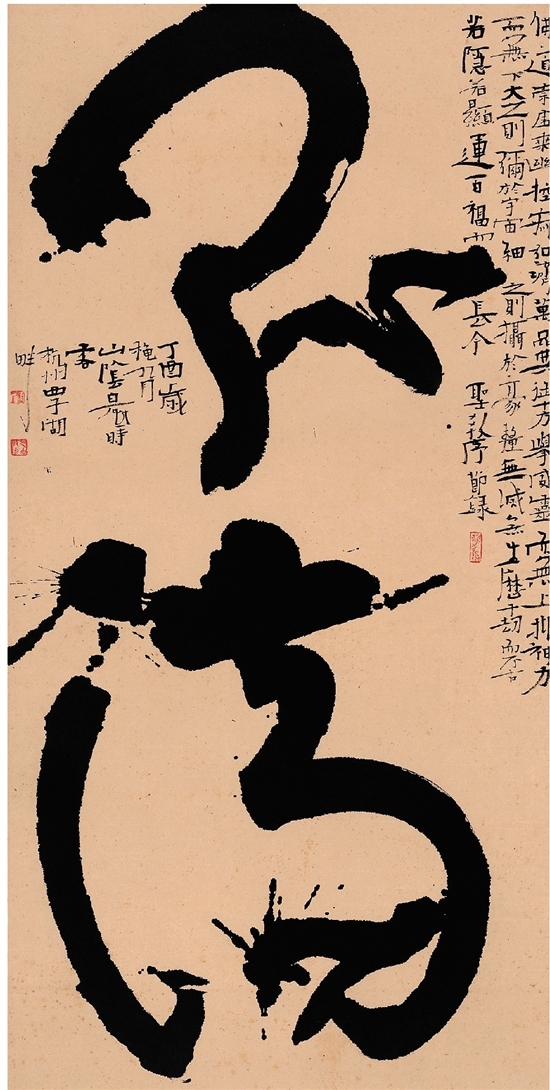 佛道崇虛乘幽控寂弘濟萬品典御十方舉威靈而無上抑神力
而無下大之則彌於宇宙細之則攝於豪釐無滅無生歷千劫而不古
若隱若顯運百福而長今 聖教序節錄
弘濟
丁酉歲
穐九月
山陰時
書
杭州湖
畔